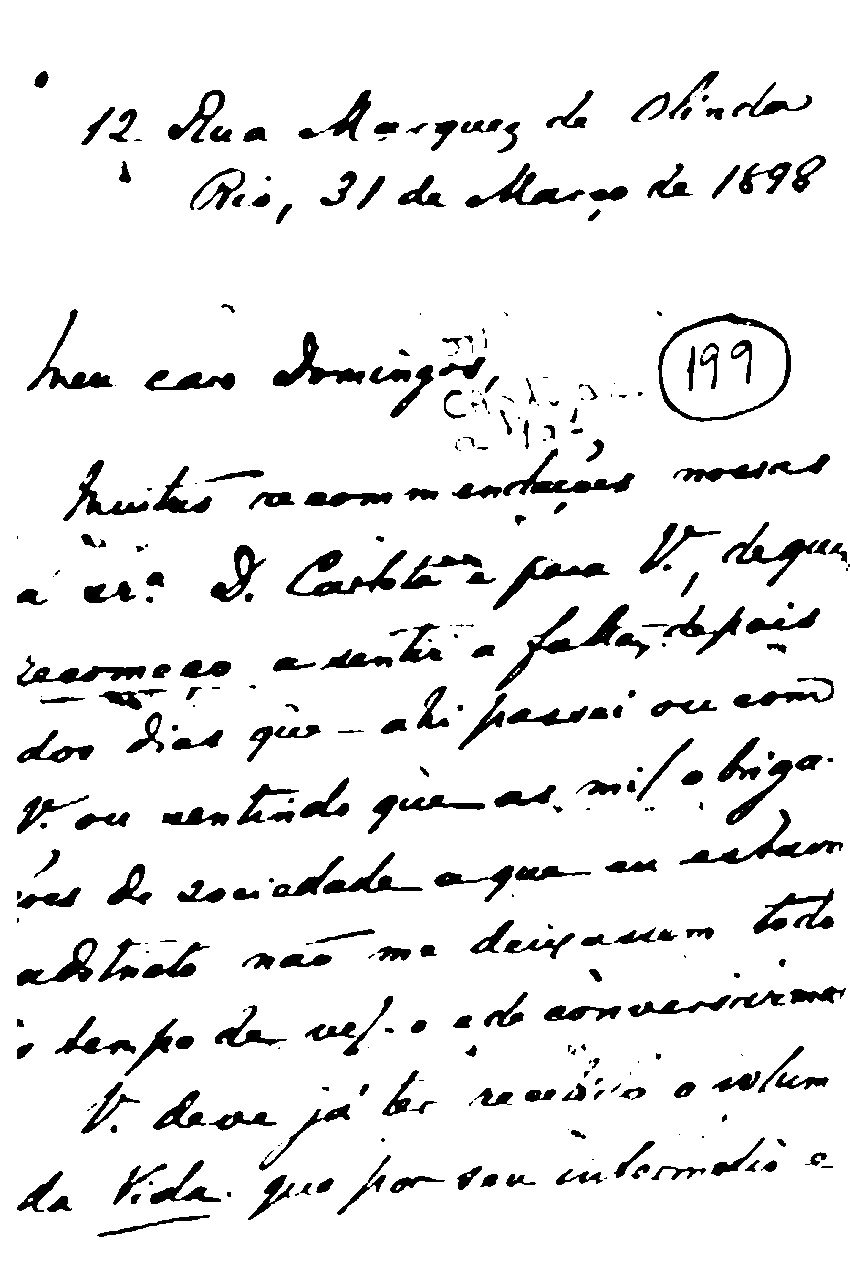 12 Rua Marquez de Olinda
Rio, 31 de Março de 1898
Meu caro Domingos,
199
Muitas recommendações nossas
á sr.ª D. Carlota e para V., de quem
recomeço a sentir a falta, depois
dos dias que ahi passei ou com
V. ou sentindo que as mil obriga-
ções de sociedade a que eu estava
adstricto não me deixassem todo
o tempo de vel-o e de conversarmos
V. deve já ter recebido o volum
da Vida que por seu intermedio e